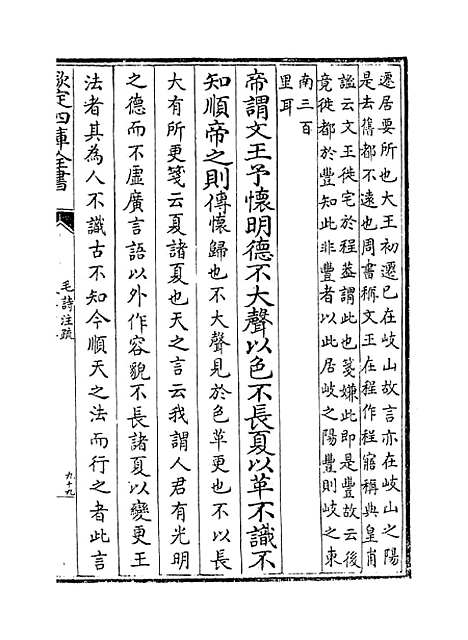 遷居要所也大王初遷已在岐山故言亦在岐山之陽
是去舊都不遠也周書稱文王在程作程寤稱典皇甫
謐云文王徙宅於程蓋謂此也箋嫌此即是豐故云後
竟徙都於豐知此非豐者以此居岐之陽豐則岐之東
南三百
里耳
帝謂文王予懷明德不大聲以色不長夏以革不識不
知順帝之則傳懷歸也不大聲見於色革更也不以長
大有所更箋云夏諸夏也天之言云我謂人君有光明
之德而不虛廣言語以外作容貌不長諸夏以變更王
法者其為人不識古不知今順天之法而行之者此言
欽定四庫全書
毛詩注疏
九十九